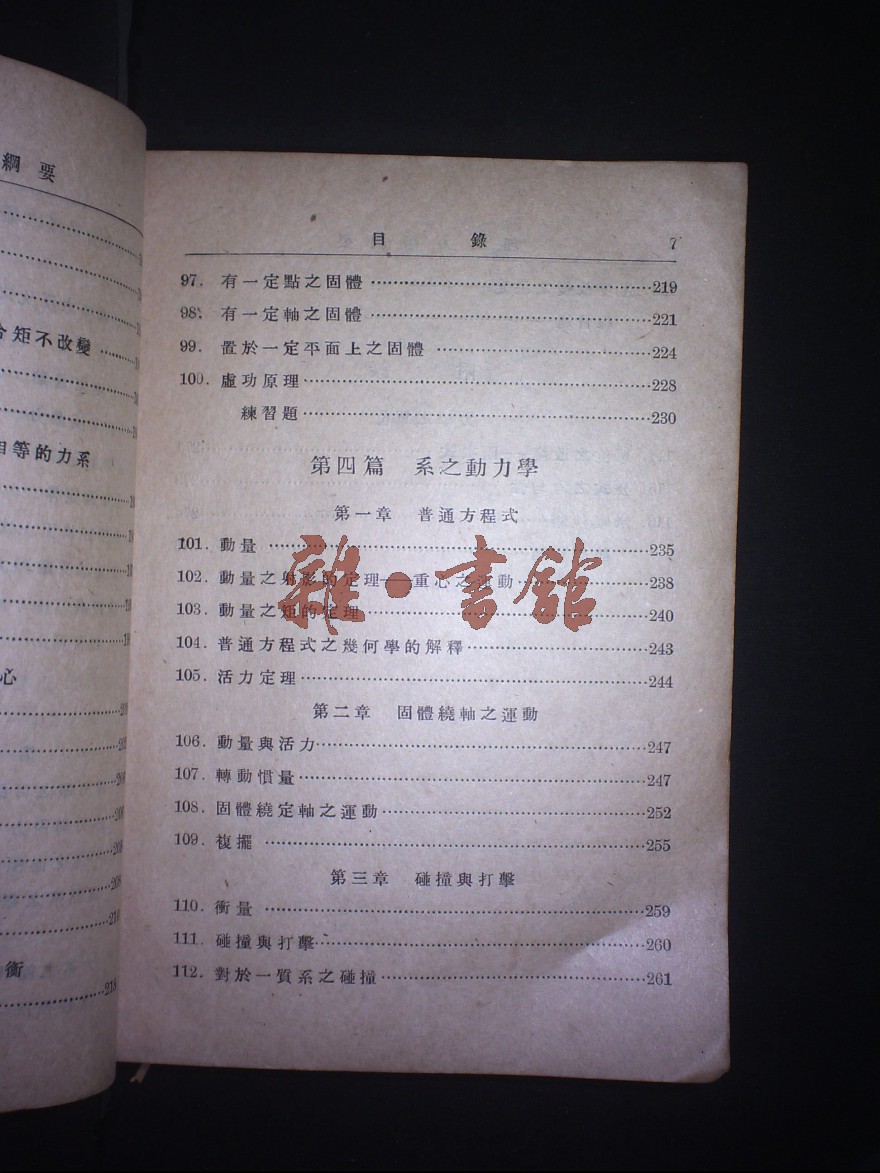 綱要
矩不改變
相等的力系
心
衡
213
目錄 7
97. 有一定點之固體 219
98. 有一定軸之固體 221
99. 置於一定平面上之固體 224
100. 虛功原理 228
練習題 230
第四篇 系之動力學
第一章 普通方程式
101. 動量 235
102. 動量之射影的定理——重心之運動 238
103. 動量之矩的定理 240
104. 普通方程式之幾何學的解釋 243
105. 活力定理 244
第二章 固體繞軸之運動
106. 動量與活力 247
107. 轉動慣量 247
108. 固體繞定軸之運動 252
109. 複擺 255
第三章 碰撞與打擊
110. 衝量 259
111. 碰撞與打擊 260
112. 對於一質系之碰撞 261
雜·書館